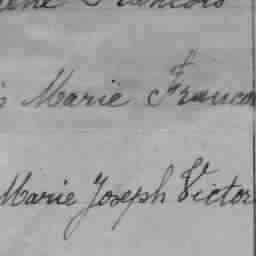 François
Marie Franco
Marie Joseph Victor